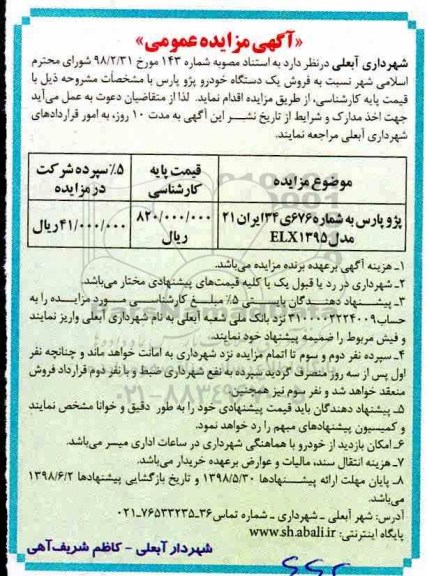 «آگهی مزایده عمومی»
شهرداری آبعلی درنظر دارد به استناد مصوبه شماره ۱۴۳ مورخ ۹۸/۲/۳۱ شورای محترم
اسلامی شهر نسبت به فروش یک دستگاه خودرو پژو پارس با مشخصات مشروحه ذیل با
قیمت پایه کارشناسی، از طریق مزایده اقدام نماید. لذا از متقاضیان دعوت به عمل می‌آید
جهت اخذ مدارک و شرایط از تاریخ نشر این آگهی به مدت ۱۰ روز، به امور قراردادهای
شهرداری آبعلی مراجعه نمایند.
موضوع مزایده
قیمت پایه کارشناسی
۵٪ سپرده شرکت در مزایده
پژو پارس به شماره ۶۷۶ی۳۴ ایران ۲۱
مدل ELX۱۳۹۵
۸۲۰/۰۰۰/۰۰۰ ریال
۴۱/۰۰۰/۰۰۰ ریال
۱ـ هزینه آگهی برعهده برنده مزایده می‌باشد.
۲ـ شهرداری در رد یا قبول یک یا کلیه قیمت‌های پیشنهادی مختار می‌باشد.
۳ـ پیشنهاد دهندگان بایستی ۵٪ مبلغ کارشناسی مورد مزایده را به
حساب ۳۱۰۰۰۰۳۲۲۴۰۰۹ نزد بانک ملی شعبه آبعلی به نام شهرداری آبعلی واریز نمایند
و فیش مربوط را ضمیمه پیشنهاد خود نمایند.
۴ـ سپرده نفر دوم و سوم تا اتمام مزایده نزد شهرداری به امانت خواهد ماند و چنانچه نفر
اول پس از سه روز منصرف گردید سپرده به نفع شهرداری ضبط و با نفر دوم قرارداد فروش
منعقد خواهد شد و نفر سوم نیز همچنین.
۵ـ پیشنهاد دهندگان باید قیمت پیشنهادی خود را به طور دقیق و خوانا مشخص نمایند
و کمیسیون پیشنهادهای مبهم را رد خواهد نمود.
۶ـ امکان بازدید از خودرو با هماهنگی شهرداری در ساعات اداری میسر می‌باشد.
۷ـ هزینه انتقال سند، مالیات و عوارض برعهده خریدار می‌باشد.
۸ـ پایان مهلت ارائه پیشنهادها ۱۳۹۸/۵/۳۰ و تاریخ بازگشایی پیشنهادها ۱۳۹۸/۶/۲
می‌باشد.
آدرس: شهر آبعلی ـ شهرداری ـ شماره تماس ۳۶ـ۷۶۵۳۳۲۳۵ـ۰۲۱
پایگاه اینترنتی: www.sh.abali.ir
شهردار آبعلی - کاظم شریف‌آهی